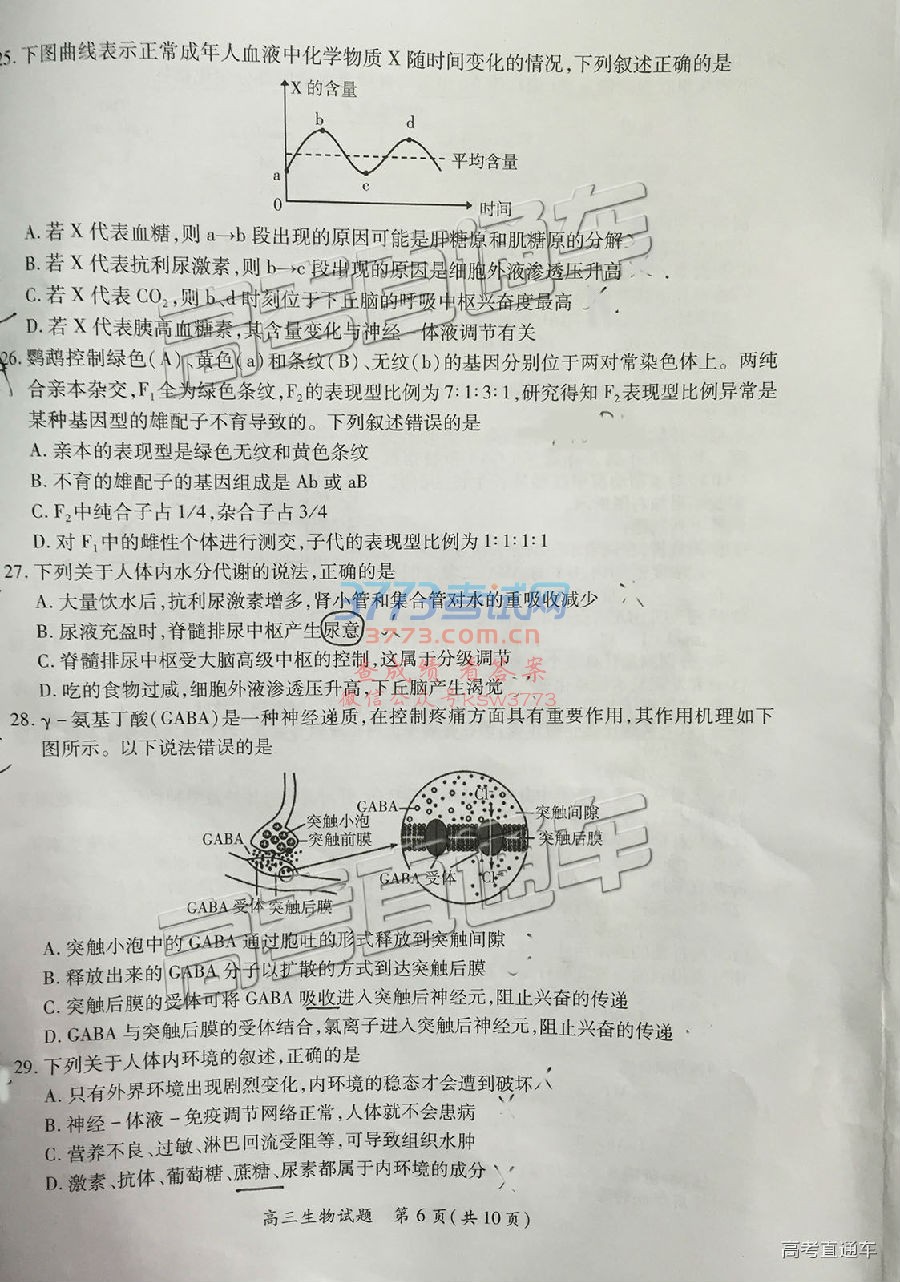 25. 下图曲线表示正常成年人血液中化学物质 X 随时间变化的情况,下列叙述正确的是
X 的含量
b
d
平均含量
a
c
0
时间
A. 若 X 代表血糖,则 a→b 段出现的原因可能是肝糖原和肌糖原的分解
B. 若 X 代表抗利尿激素,则 b→c 段出现的原因是细胞外液渗透压升高
C. 若 X 代表 CO₂,则 b、d 时刻位于下丘脑的呼吸中枢兴奋度最高
D. 若 X 代表胰高血糖素,其含量变化与神经—体液调节有关
26. 鹦鹉控制绿色(A)、黄色(a)和条纹(B)、无纹(b)的基因分别位于两对常染色体上。两纯
合亲本杂交,F₁全为绿色条纹,F₂的表现型比例为 7∶1∶3∶1,研究得知 F₂表现型比例异常是
某种基因型的雄配子不育导致的。下列叙述错误的是
A. 亲本的表现型是绿色无纹和黄色条纹
B. 不育的雄配子的基因组成是 Ab 或 aB
C. F₂中纯合子占 1/4,杂合子占 3/4
D. 对 F₁中的雌性个体进行测交,子代的表现型比例为 1∶1∶1∶1
27. 下列关于人体内水分代谢的说法,正确的是
A. 大量饮水后,抗利尿激素增多,肾小管和集合管对水的重吸收减少
B. 尿液充盈时,脊髓排尿中枢产生尿意
C. 脊髓排尿中枢受大脑高级中枢的控制,这属于分级调节
D. 吃的食物过咸,细胞外液渗透压升高,下丘脑产生渴觉
3773考试网
3773.com.cn
查成绩 看答案
微信公众号ksw3773
28. γ-氨基丁酸(GABA)是一种神经递质,在控制疼痛方面具有重要作用,其作用机理如下
图所示。以下说法错误的是
GABA
突触小泡
突触前膜
GABA 受体
突触后膜
GABA
Cl⁻
突触间隙
突触后膜
GABA 受体
Cl⁻
A. 突触小泡中的 GABA 通过胞吐的形式释放到突触间隙
B. 释放出来的 GABA 分子以扩散的方式到达突触后膜
C. 突触后膜的受体可将 GABA 吸收进入突触后神经元,阻止兴奋的传递
D. GABA 与突触后膜的受体结合,氯离子进入突触后神经元,阻止兴奋的传递
29. 下列关于人体内环境的叙述,正确的是
A. 只有外界环境出现剧烈变化,内环境的稳态才会遭到破坏
B. 神经-体液-免疫调节网络正常,人体就不会患病
C. 营养不良、过敏、淋巴回流受阻等,可导致组织水肿
D. 激素、抗体、葡萄糖、蔗糖、尿素都属于内环境的成分
高三生物试题 第 6 页(共 10 页)
高考直通车
高考直通车
高考直通车